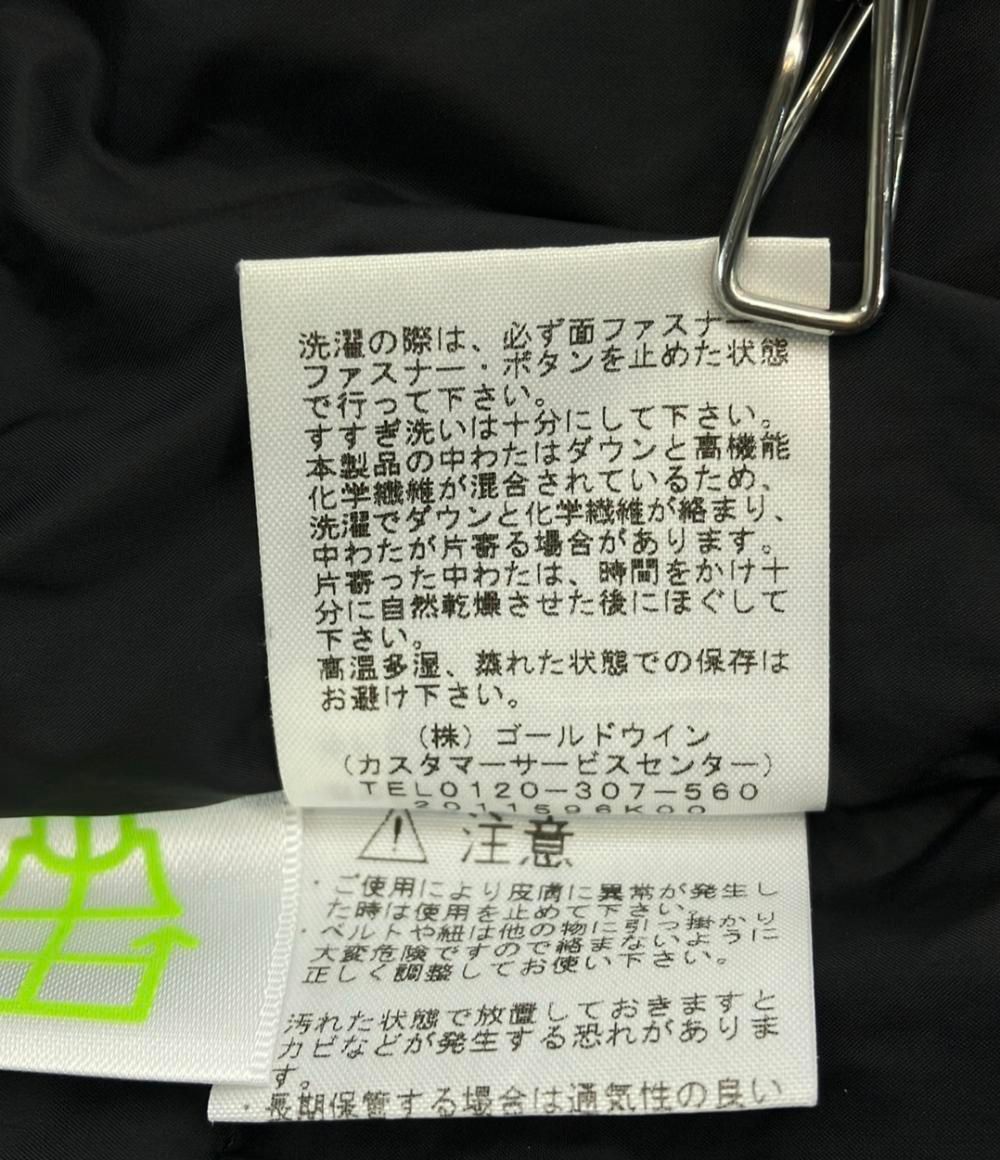 洗濯の際は、必ず面ファスナー
ファスナー・ボタンを止めた状態
で行って下さい。
すすぎ洗いは十分にして下さい。
本製品の中わたはダウンと高機能
化学繊維が混合されているため、
洗濯でダウンと化学繊維が絡まり、
中わたが片寄る場合があります。
片寄った中わたは、時間をかけ十
分に自然乾燥させた後にほぐして
下さい。
高温多湿、蒸れた状態での保存は
お避け下さい。
(株)ゴールドウイン
(カスタマーサービスセンター)
TEL0120-307-560
2011596K00
注意
・ご使用により皮膚に異常が発生し
た時は使用を止めて下さい。
・ベルトや紐は他の物に引っ掛かり
大変危険ですので絡まないように
正しく調整してお使い下さい。
汚れた状態で放置しておきますと
カビなどが発生する恐れがありま
す。
・長期保管する場合は通気性の良い